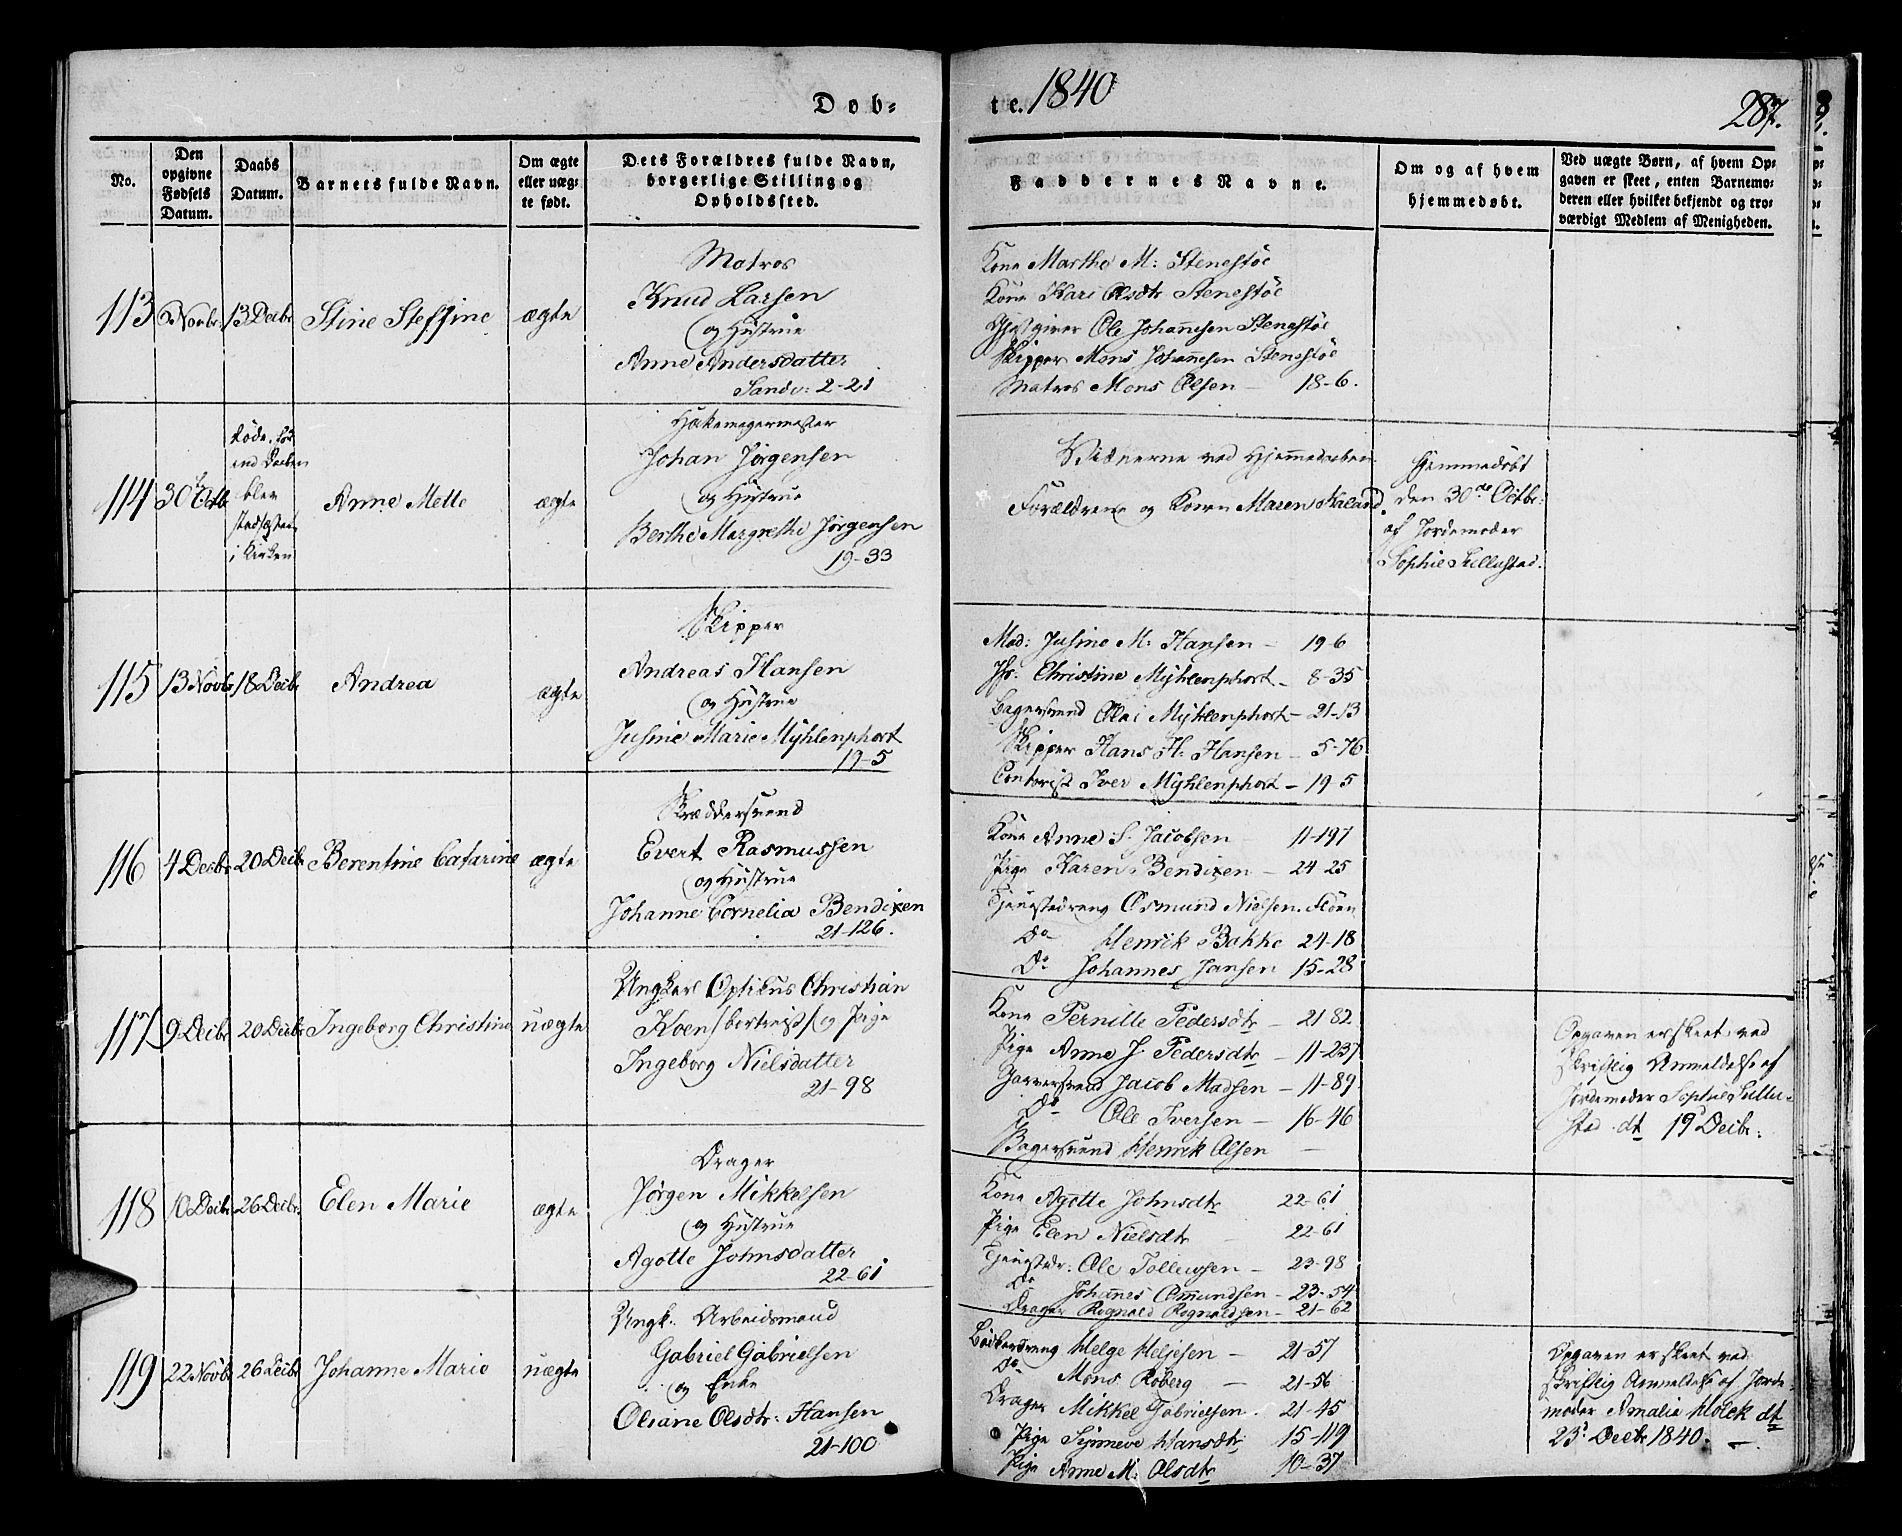 Døb=
te. 1840
287.
No.
Den opgivne Fødsels Datum.
Daabs Datum.
Barnets fulde Navn.
Om ægte eller uæg- te født.
Dets Forældres fulde Navn, borgerlige Stilling og Opholdssted.
Faddernes Navne.
Om og af hvem hjemmedøbt.
Ved uægte Børn, af hvem Op- gaven er skeet, enten Barnemo- deren eller hvilket bekjendt og tro- værdigt Medlem af Menigheden.
113
Novbr
13 Decbr
Stine Steffine
ægte
Matros
Knud Larsen
og Hustrue
Anne Andersdatter
Sandv: 2-21
Kone Marthe M: Stenestøe
Kone Kari Olsdtr Stenestøe
Ole Johannesen Stenestøe
Skipper Mons Johannesen Stenestøe
Matros Mons Olsen — 18-6.
114
30 Octb
Døde. før
end Daaben
blev
stadfæstet
i Kirken
Anne Mette
ægte
Johan Jørgensen
og Hustrue
Berthe Margrethe Jørgensen
19-33
Vidnerne ved Hjemmedaaben
Forældrene og Konen Maren Kaland.
Hjemmedøbt
den 30te Octbr:
af Jordemoder
Sophie Sellustad.
115
13 Novbr
18 Decbr
Andrea
ægte
Skipper
Andreas Hansen
og Hustrue
Jusine Marie Myhlenphort
19-5
Mad: Jusine M. Hansen — 19-6
Jfr: Christine Myhlenphort — 8-35
Bagersvend Olai Myhlenphort — 21-13
Skipper Hans H. Hansen — 5-76
Contorist Iver Myhlenphort — 19-5
116
4 Decbr
20 Decbr
Berentine Catarine
ægte
Skræddersvend
Evert Rasmussen
og Hustrue
Johanne Cornelia Bendixen
21-126.
Kone Anne S. Jacobsen — 11-197
Pige Karen Bendixen — 24-25
Tjenestedreng Osmund Nielsen. Fløen
Do Henrik Bakke 24-18
Do Johannes Jansen 15-28
117
9 Decbr
20 Decbr
Ingeborg Christine
uægte
Ungkarl Optikus Christian
Koen /bortreist/ og Pige
Ingeborg Nielsdatter
21-98
Kone Pernille Pedersdtr — 21-82
Pige Anne J. Pedersdtr — 11-237
Garversvend Jacob Madsen — 11-89.
Do Ole Iversen — 16-46
Bagersvend Henrik Olsen —
Opgaven er skeet ved
skriftlig Anmeldelse af
Jordemoder Sophie Sellu-
stad dt 19 Decbr:
118
10 Decbr
26 Decbr.
Elen Marie
ægte
Drager
Jørgen Mikkelsen
og Hustrue
Agotte Johnsdatter
22-61
Kone Agotte Johnsdtr 22-61
Pige Elen Nielsdtr — 22-61
Tjenestedr: Ole Tollevsen — 23-98
Do Johannes Omundsen — 23-54
Drager Rognald Rognaldsen — 21-62
119
22 Novbr
26 Decbr
Johanne Marie
uægte
Ungk: Arbeidsmand
Gabriel Gabrielsen
og Enke
Oliane Olsdtr: Hansen
21-100
Bødkerdreng Helge Helgesen — 21-57
Do Mons Roberg — 21-56
Drager Mikkel Gabrielsen. 21-45
Pige Synneve Hansdtr 15-119
Pige Anne M. Olsdtr 10-37
Opgaven er skeet ved
skriftlig Anmeldelse af Jorde-
moder Amalia Holck dt
23 Decbr 1840. —